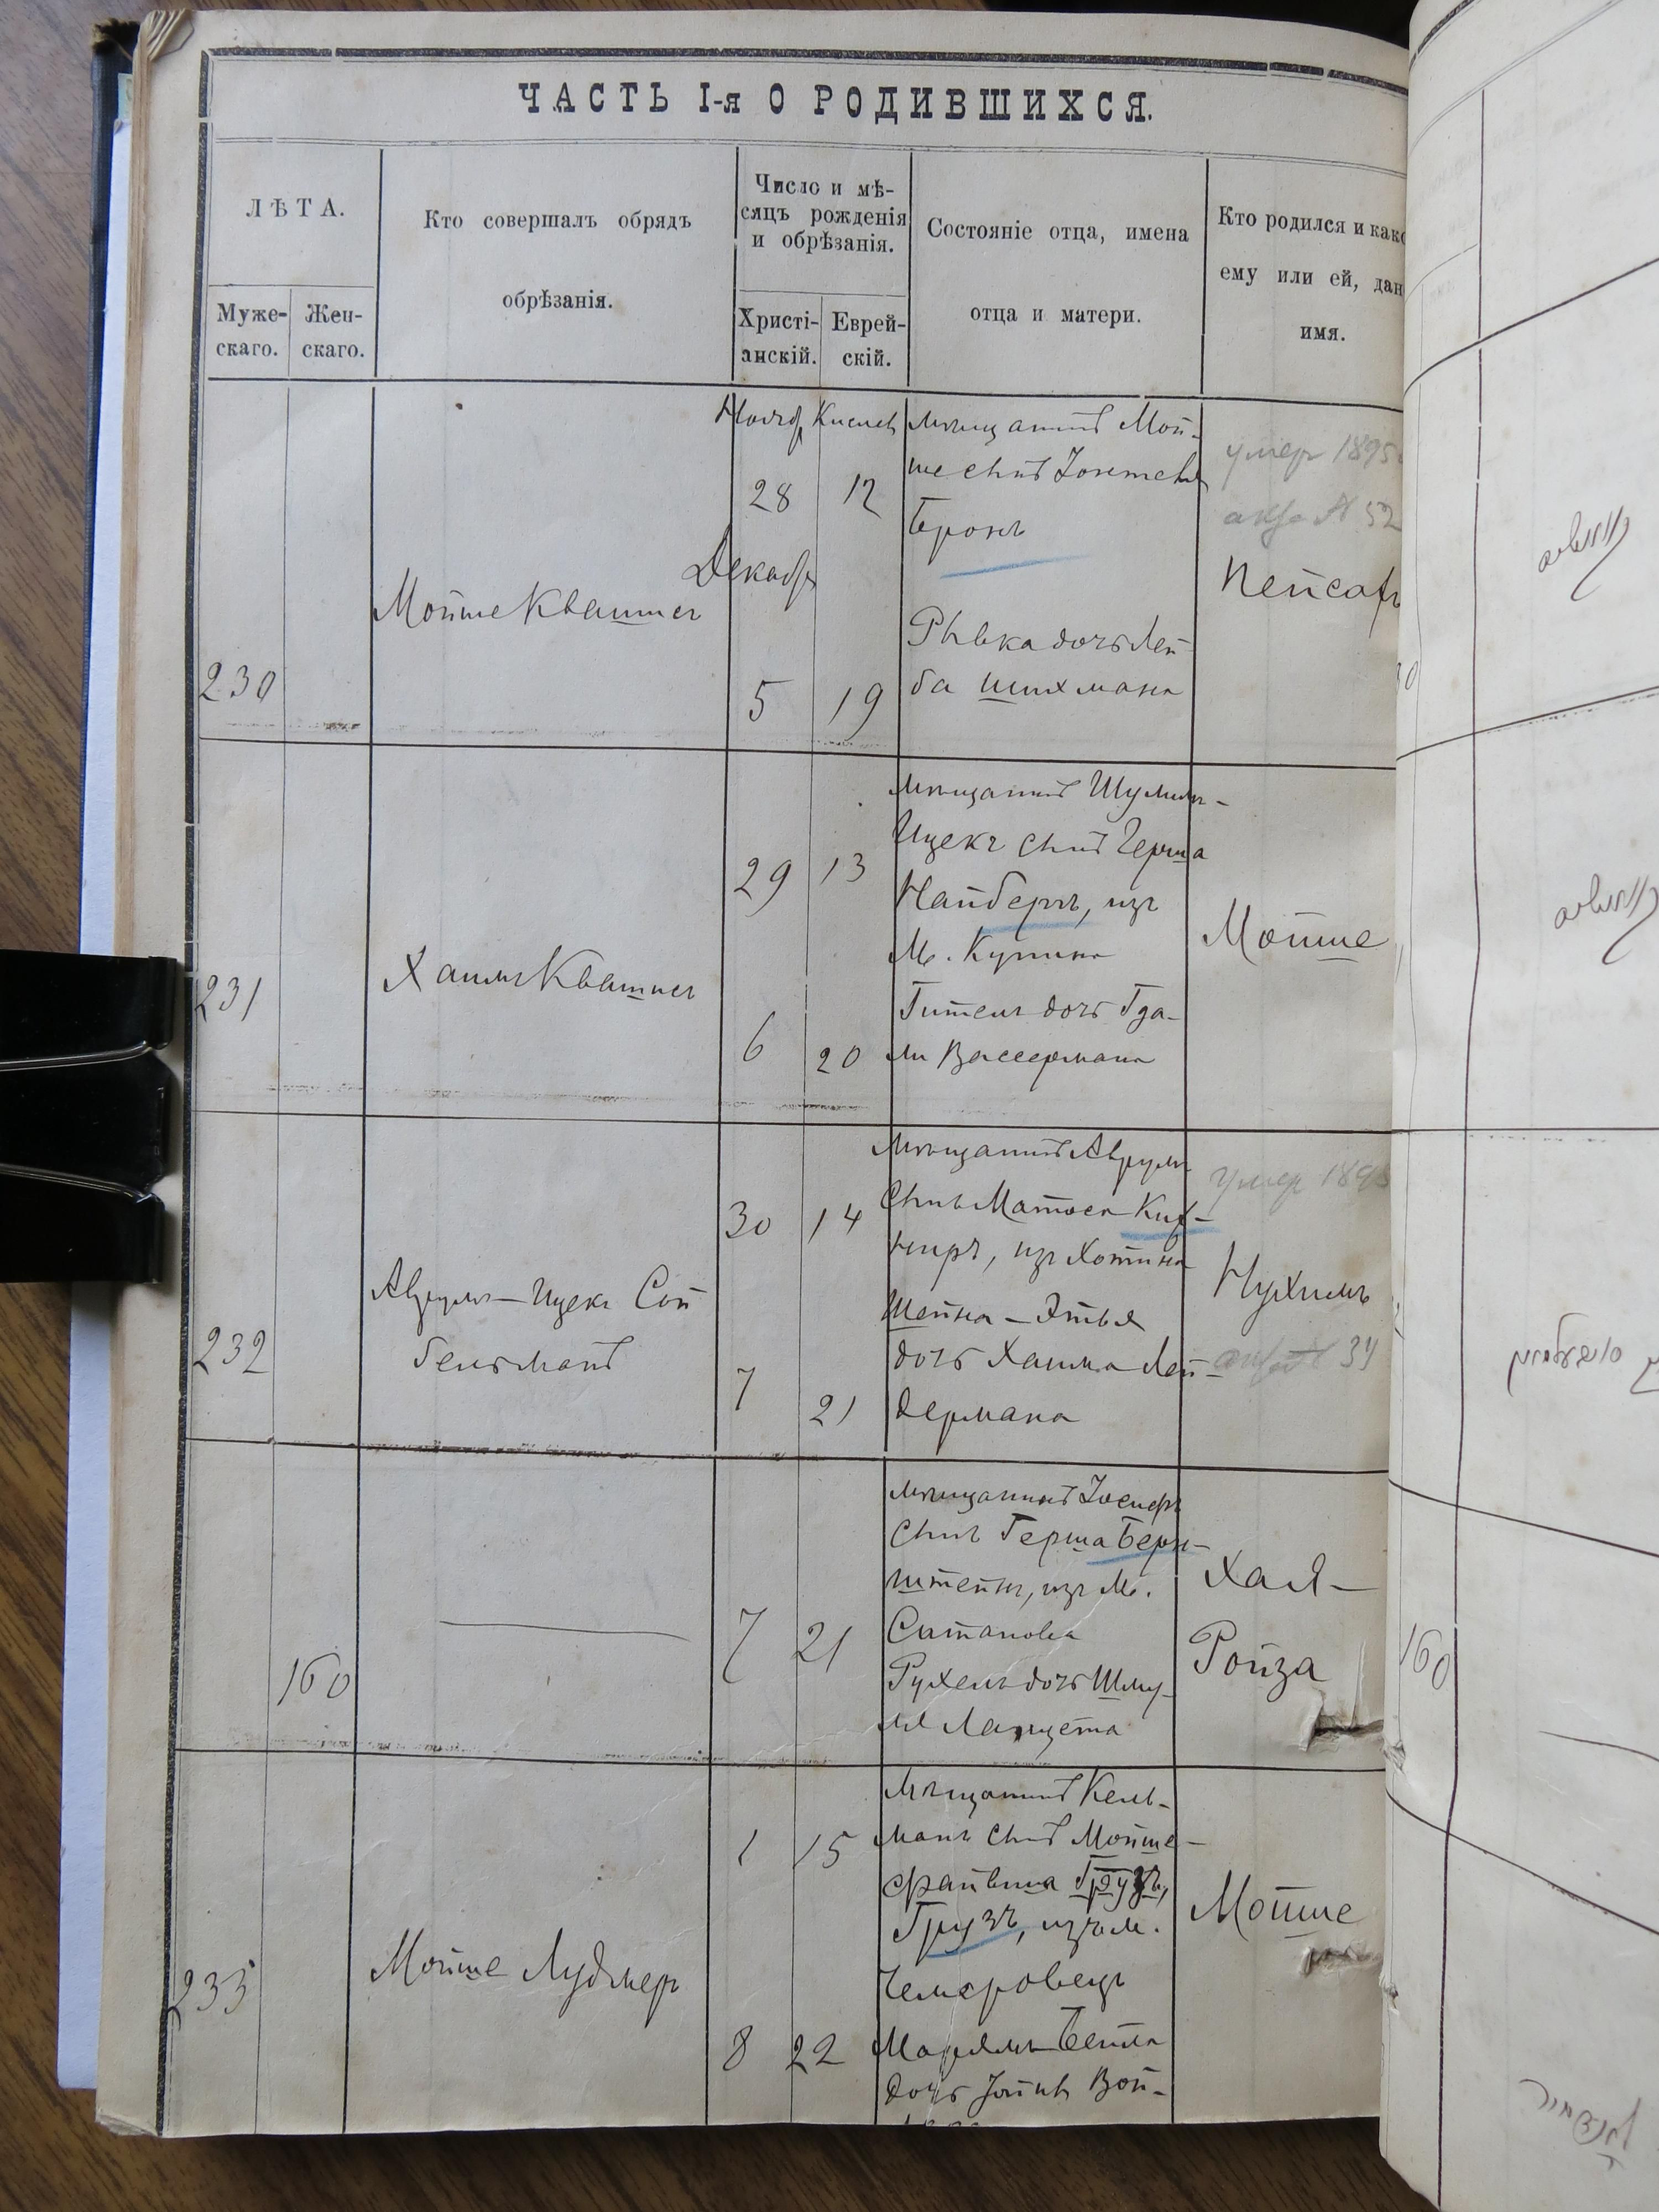 ЧАСТЬ I-я О РОДИВШИХСЯ.
ЛѢТА.
Муже-
скаго.
Жен-
скаго.
Кто совершалъ обрядъ
обрѣзанія.
Число и мѣ-
сяцъ рожденія
и обрѣзанія.
Христі-
анскій.
Еврей-
скій.
Состояніе отца, имена
отца и матери.
Кто родился и како
ему или ей, дан
имя.
230
Мойше Квашнеъ
Ноябр Кислев
28 12
Декабр
5 19
мѣщанинъ Мой-
ше сынъ
Бронъ
Рывка дочь Лей-
ба Шихмана
умер 1895
актъ № 52
Пейсахъ
231
Хаимъ Квашнеъ
29 13
6 20
мѣщанинъ Шулимъ-
Ицекъ сынъ Герша
Найбергъ, изъ
М. Купина
Гитель дочь Гда-
ли Вассермана
Мойше
232
Аврумъ-Ицекъ Сой
бельманъ
30 14
7 21
мѣщанинъ Аврумъ
сынъ Матоса Кир-
ниръ, изъ Хотина
Шейна-Этья
дочь Хаима Лей-
дермана
умер 1895
Нухимъ
актъ № 34
160
7 21
мѣщанинъ Іосифъ
сынъ Герша Берн-
штейнъ, изъ М.
Сатанова
Рухель дочь Шму-
ля Ланцета
Хая-
Ройза
233
Мойше Лудмеръ
1 15
8 22
мѣщанинъ Кель-
манъ сынъ Мойше-
файвиша
Грузъ, изъ м.
Чемеровецъ
Марямъ Бейла
дочь Вой-
Мойше
160